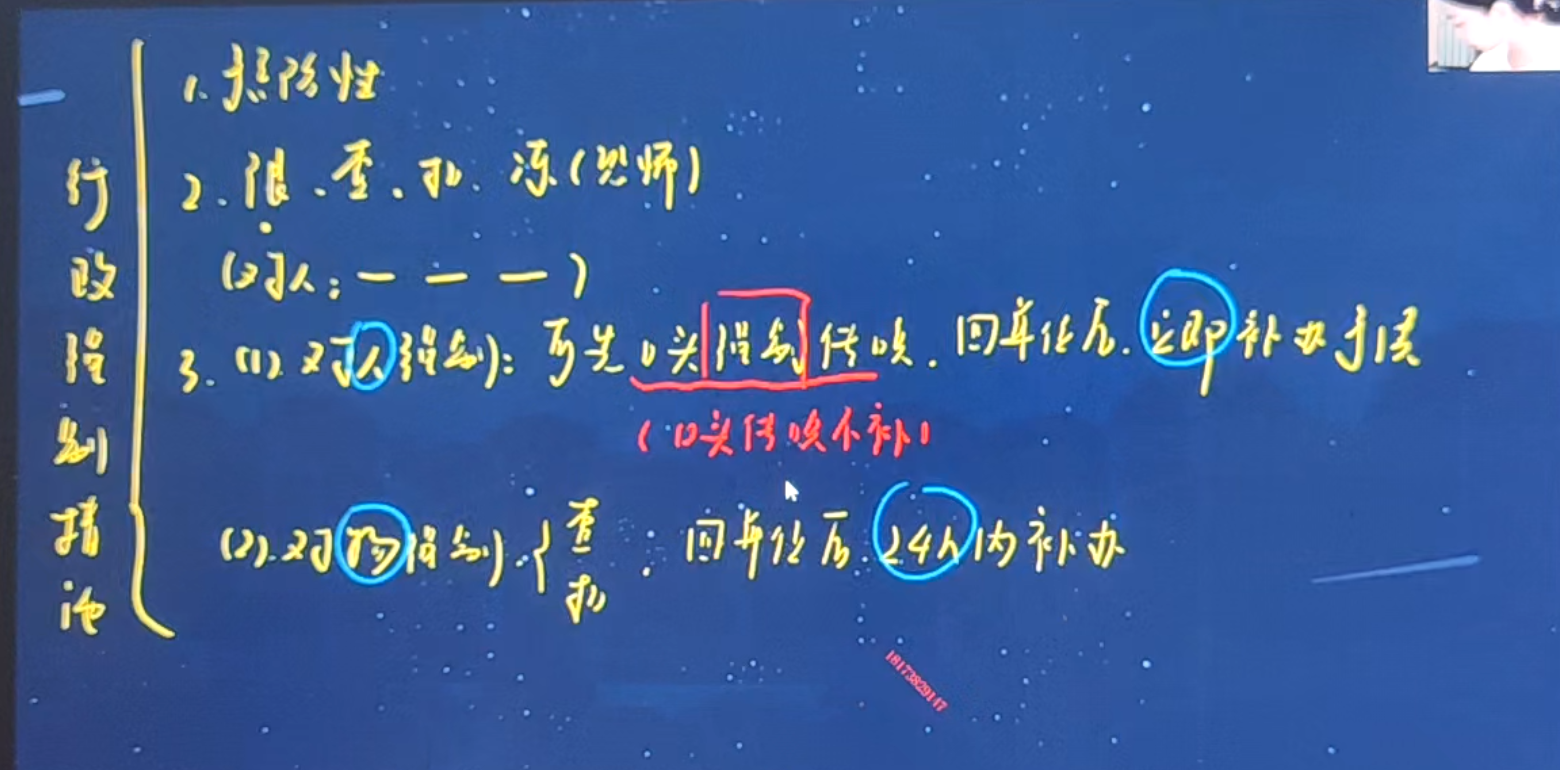 行政强制措施
1. 防性
2. 限、查、扣、冻(师)
(对人:— — —)
3. (1). 对人强制): 可先口头强制传唤. 回单位后. 立即补办手续
(口头传唤不补)
(2). 对物强制). { 查 扣 . 回单位后. 24h内补办
18173829147